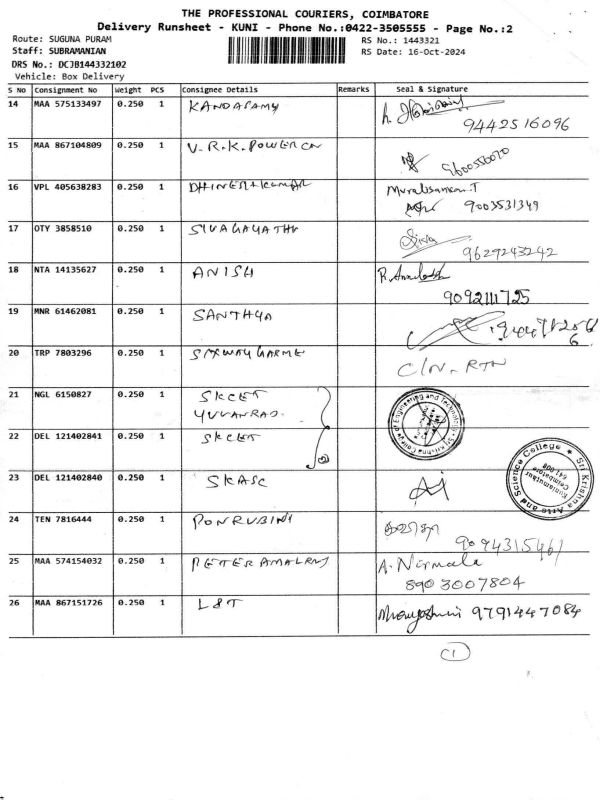 THE PROFESSIONAL COURIERS, COIMBATORE
Delivery Runsheet - KUNI - Phone No.:0422-3505555 - Page No.:2
Route: SUGUNA PURAM RS No.: 1443321
Staff: SUBRAMANIAN RS Date: 16-Oct-2024
DRS No.: DCJB144332102
Vehicle: Box Delivery
S No Consignment No Weight PCS Consignee Details Remarks Seal & Signature
14 MAA 575133497 0.250 1 KANDASAMY
9442516096
15 MAA 867104809 0.250 1 V.R.K.POWER CN
9600550070
16 VPL 405638283 0.250 1 DHINESHKUMAR Muralisankar.T
9003531349
17 OTY 3858510 0.250 1 SIVAGAYATHRI Siva
9629243242
18 NTA 14135627 0.250 1 ANISH
9092111725
19 MNR 61462081 0.250 1 SANTHYA
20 TRP 7803296 0.250 1 C/N-RTN
21 NGL 6150827 0.250 1 SKCET
YUVANRAJ
Sri Krishna College of Engineering and Technology
22 DEL 121402841 0.250 1 SKCET
23 DEL 121402840 0.250 1 SKASC
Sri Krishna Arts and Science College
Kuniamuthur
Coimbatore
641 008
24 TEN 7816444 0.250 1 PONRUBINI
25 MAA 574154032 0.250 1 PETER AMALRAJ A. Nirmala
8903007804
26 MAA 867151726 0.250 1 L&T 9791447084
C1